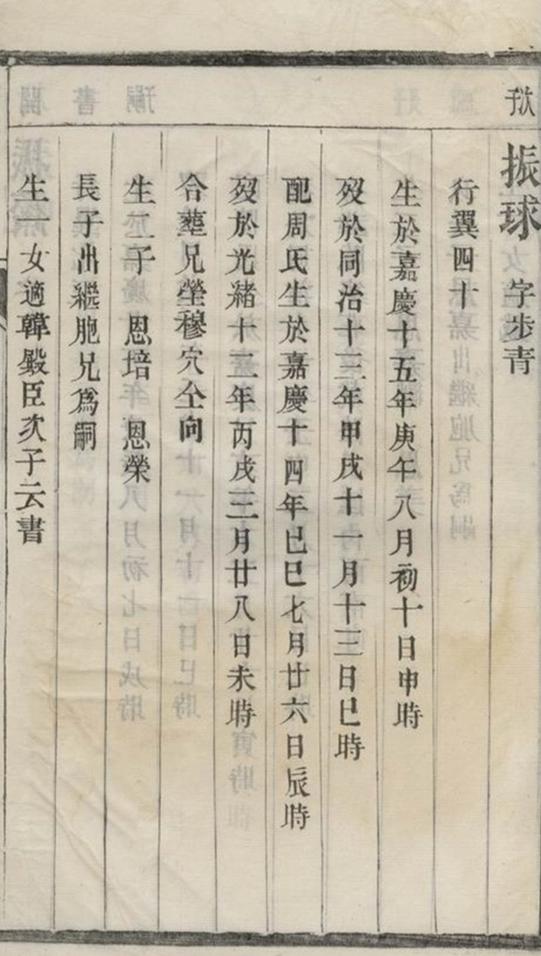 振球 字步青
行翼四十
生於嘉慶十五年庚午八月初十日申時
歿於同治十三年甲戌十一月十三日巳時
配周氏生於嘉慶十四年己巳七月廿六日辰時
歿於光緒十二年丙戌三月廿八日未時
合塟兄塋穆穴仝向
生二子 恩培 恩榮
長子出繼胞兄爲嗣
生一女適韓毅臣次子云書